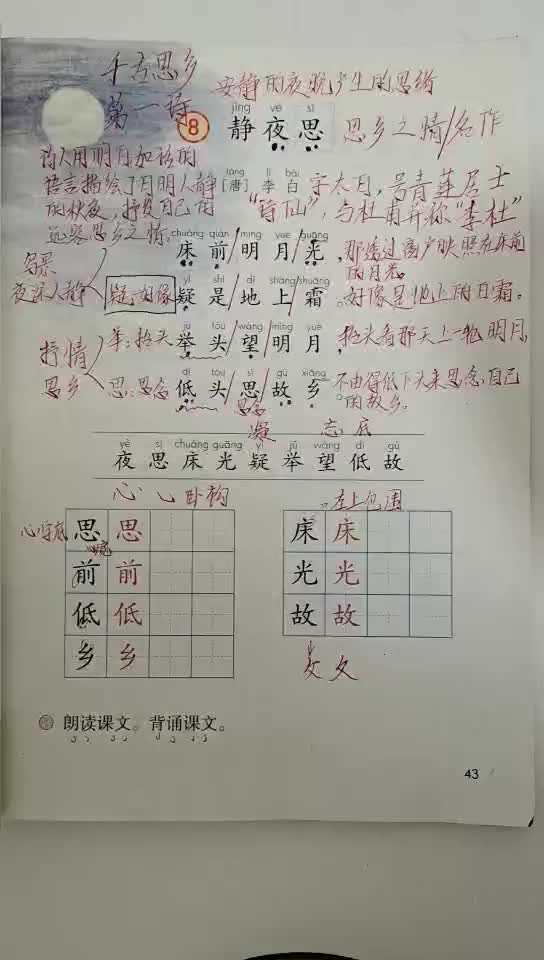 千古思乡
第一诗
安静的夜晚产生的思绪
jìng yè sī
8 静夜思
思乡之情/名作
诗人用明月如话的
语言描绘了月明人静
的秋夜,抒发自己的
远客思乡之情。
táng lǐ bái
[唐] 李白
字太白,号青莲居士
“诗仙”,与杜甫并称“李杜”
chuáng qián míng yuè guāng
床前/明月/光,
那透过窗户映照在床前
的月光。
写景
夜深人静
yí shì dì shàng shuāng
疑:好像 疑是/地上/霜。
好像是地上的白霜。
jǔ tóu wàng míng yuè
举:抬头 举头/望/明月,
抬头看那天上一轮明月,
抒情
思乡
dī tóu sī gù xiāng
思:思念 低头/思/故乡。
不由得低下头来思念自己
的故乡。
思念
凝 忘 底
yè sī chuáng guāng yí jǔ wàng dī gù
夜思床光疑举望低故
心 乀 卧钩
左上包围
心字底 思 思
前 前
低 低
乡 乡
床 床
光 光
故 故
攵 夂
朗读课文。背诵课文。
43